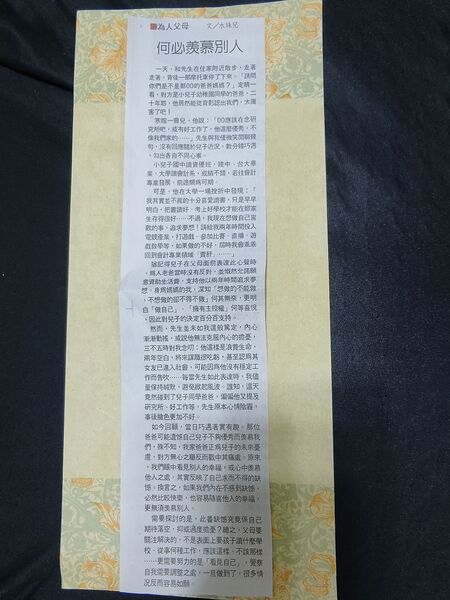 為人父母 文／水姝兒
何必羨慕別人
一天，和先生在住家附近散步，走著
走著，背後一部摩托車停了下來。「請問
你們是不是那00的爸爸媽媽？」定睛一
看，對方是小兒子幼稚園同學的爸爸，二
十年耶，他居然能從背影認出我們，太厲
害了吧！
寒暄一會兒，他說：「00應該在念研
究所吧，或有好工作了，他這麼優秀，不
像我們家的……」先生與我僅微笑閒聊幾
句，沒有回應關於兒子近況。數分鐘巧遇
，勾出各自不同心事。
小兒子國中讀資優班，建中、台大畢
業，大學讀會計系，成績不錯，若往會計
專業發展，前途頗為可期。
可是，他在大學一場挫折中發現：「
我其實並不真的十分喜愛讀書，只是早早
明白，把書讀好、考上好學校才能在那家
生存得很好……不過，我現在想做自己喜
歡的事，追求夢想！請給我兩年時間投入
電競產業，打遊戲、參加比賽、直播、遊
戲教學等，如果做的不好，屆時我會乖乖
回到會計專業領域『賣肝』……」
猶記得兒子在父母面前表達此心聲時
，為人老爸當時沒有反對，並慨然允諾願
意資助生活費，支持他以兩年時間追求夢
想。身為媽媽的我，深知「想做的不能做
，不想做的卻不得不做」何其無奈，更明
白「做自己」、「擁有主控權」何等喜悅
，因此對兒子的決定百分百支持。
然而，先生並未如我這般篤定，內心
漸漸動搖，或說他無法克服內心的擔憂，
三不五時對我念叨：他這樣是浪費生命，
兩年空白，將來謀職很吃虧，甚至認為其
女友已進入社會，可能因為他沒有穩定工
作而告吹……每當先生如此表達時，我儘
量保持緘默，避免掀起風波。誰知，這天
竟然碰到了兒子同學爸爸，偏偏他又提及
研究所、好工作等，先生原本心情陰霾，
事後臉色更加不好。
如今回顧，當日巧遇著實有趣。那位
爸爸可能遺憾自己兒子不夠優秀而羨慕我
們，殊不知，我家爸爸正為兒子的未來憂
慮，對方無心之語反而戳中其痛處。原來
，我們眼中看見別人的幸福，或心中羨慕
他人之處，其實反映了自己求而不得的缺
憾。換言之，如果我們內在不感到缺憾，
必然比較快樂，也容易隨喜他人的幸福，
更無須羨慕別人。
需要探討的是，此番缺憾究竟係自己
期待落空，抑或過度擔憂？總之，父母要
關注解決的，不是表面上要孩子讀什麼學
校、從事何種工作，應該這樣、不該那樣
……更需要努力的是「看見自己」，覺察
自我需要調整之處，一旦做到了，很多情
況反而容易如願。